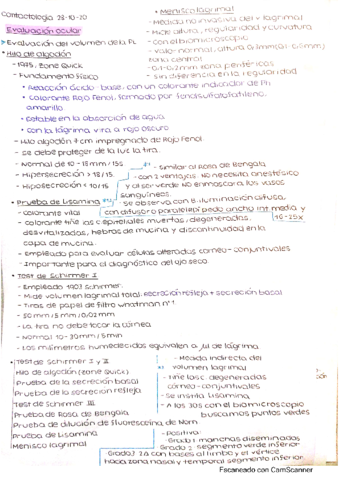 Contactología 28-10-20
Evaluación ocular
> Evaluación del volumen de la PL
• Hilo de algodón
- 1975. Zone Quick
- Fundamento físico
• Reacción ácido-base, con un colorante indicador de PH
• colorante Rojo Fenol, formado por fenolsulfotaftaleno.
amarillo
• estable en la absorción de agua
• con la lágrima vira a rojo oscuro
- Hilo algodón 7cm impregnado de Rojo Fenol
- se debe proteger de la luz la tira.
- Normal de 10-18 mm/15s
- Hipersecreción > 18/15.
- Hiposecreción < 10/15
• Menisco lagrimal
- Medida no invasiva del v lagrimal
- Mide altura, regularidad y curvatura
- con el biomicroscopio
- Valor normal, altura
toria central
- 0.1-0.2mm zona periféricas
- sin diferencia en la regularidad
- similar al Rosa de Bengala
- con 2 ventajas. No necesita anestésico
y al ser verde no enmascara los vasos
sanguíneos
• Prueba de Lisamina
- se observa con B. iluminación difusa,
- colorante vital
con difusor o paralelepípedo ancho int media y
16-25x
- colorante tiñe las c epiteliales muertas, degeneradas,
desvitalizadas, hebras de mucina y discontinuidad en la
capa de mucina.
- empleado para evaluar células alteradas corneo-conjuntivales
- Importante para el diagnóstico del ojo seco
• Test de Schirmer I
- Empleado 1903 Schirmer.
- Mide volumen lagrimal total. Secreción refleja + secreción basal
- Tiras de papel de filtro Whatman nº1.
- 50 mm / 5 mm / 0,02 mm
- La tira no debe tocar la córnea
- Normal 10-30mm / 5min
- Los milímetros humedecidos equivalen a µl de lágrima
• Test de Schirmer I y II
Hilo de algodón (Zone Quick)
Prueba de la secreción basal
Prueba de la secreción refleja
Test de Schirmer III
Prueba de Rosa de Bengala
Prueba de dilución de fluoresceína, de Norn
Prueba de Lisamina
Menisco lagrimal
- Medida indirecta del
volumen lagrimal
- Tiñe las c degeneradas
córneo-conjuntivales
- se instila Lisamina
- A los 30s con el biomicroscopio
buscamos puntos verdes
- Positiva:
Grado 1 manchas diseminadas
Grado 2 segmento verde inferior
Grado 3 2Δ con bases al limbo y el vértice
hacia zona nasal y temporal segmento inferior.
Escaneado con CamScanner